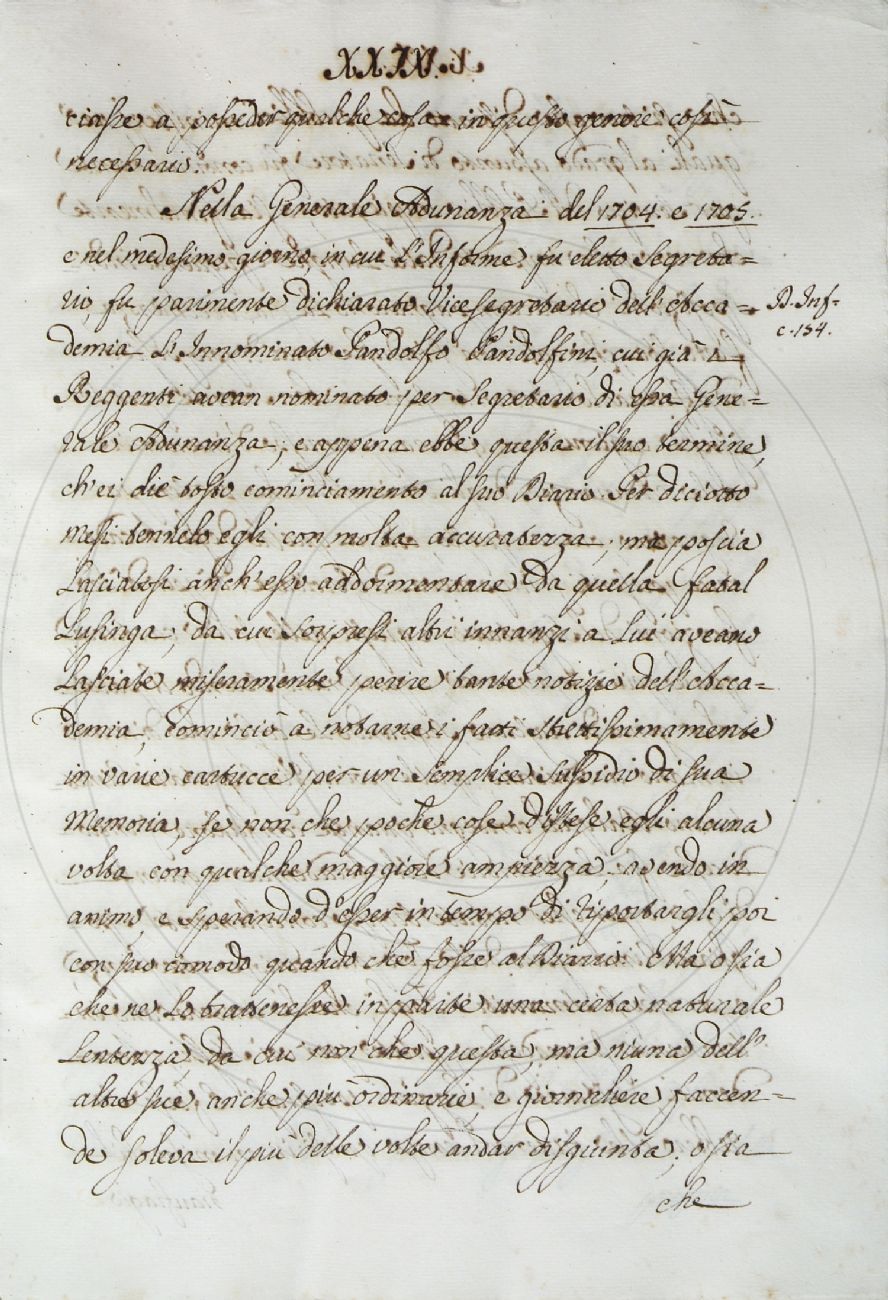 XXXIV.
ciasse a posseder qualche cosa in questo genere così
necessario.
Nella Generale Adunanza del 1704. e 1705.
e nel medesimo giorno, in cui L'Informe fu eletto Segreta=
rio, fu parimente dichiarato Vicesegretario dell'Acca=
D. Inf.
c. 154.
demia L'Innominato Pandolfo Pandolfini, cui già i
Reggenti avean nominato per Segretario di essa Gene=
rale Adunanza; e appena ebbe questa il suo termine,
ch'ei diè tosto cominciamento al suo Diario. Per diciotto
mesi tennelo egli con molta accuratezza; ma poscia
Lasciatosi anch'esso addormentare da quella fatal
Lusinga, da cui sorpresi altri innanzi a Lui aveano
Lasciate miseramente perire tante notizie dell'Acca=
demia, cominciò a notarne i fatti strettissimamente
in varie cartucce per un semplice sussidio di sua
Memoria, se non che poche cose distese egli alcuna
volta con qualche maggiore ampiezza, avendo in
animo, e sperando d'esser in tempo di riportargli poi
con suo comodo quando che fosse al Diario. Ma o sia
che ne Lo trattenesse in parte una certa naturale
Lentezza, da cui non che questa, ma niuna dell'
altre sue anche più ordinarie, e giornaliere faccen=
de soleva il più delle volte andar disgiunta; o sia
che